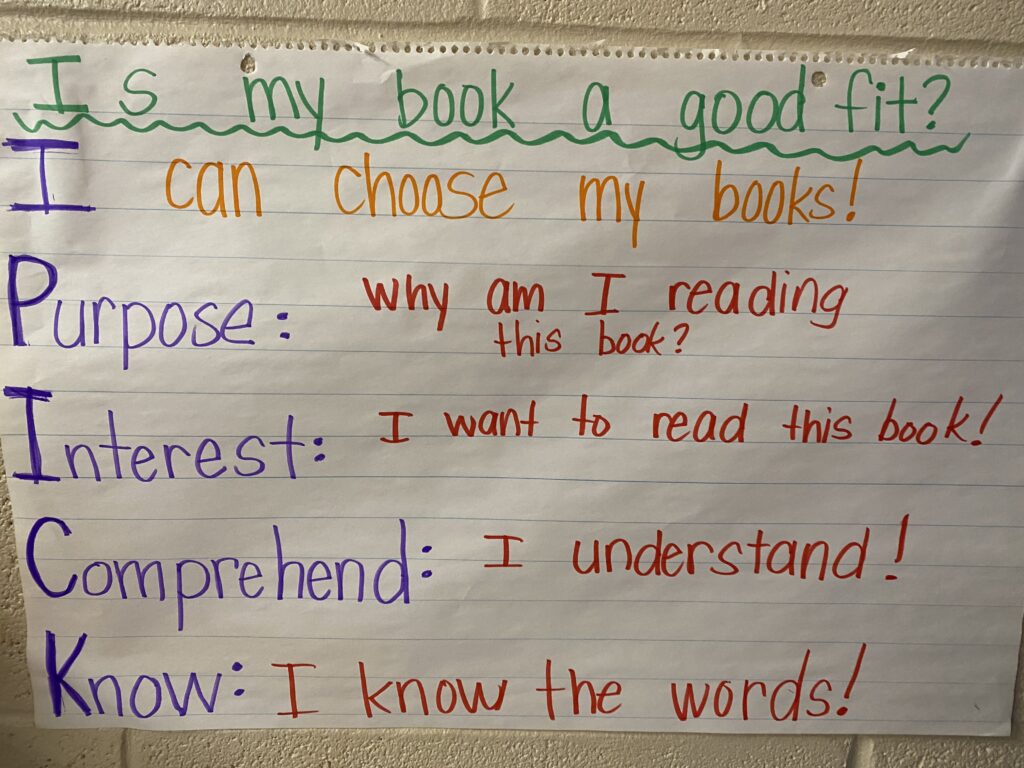 Is my book a good fit?
I can choose my books!
Purpose: why am I reading
this book?
Interest: I want to read this book!
Comprehend: I understand!
Know: I know the words!